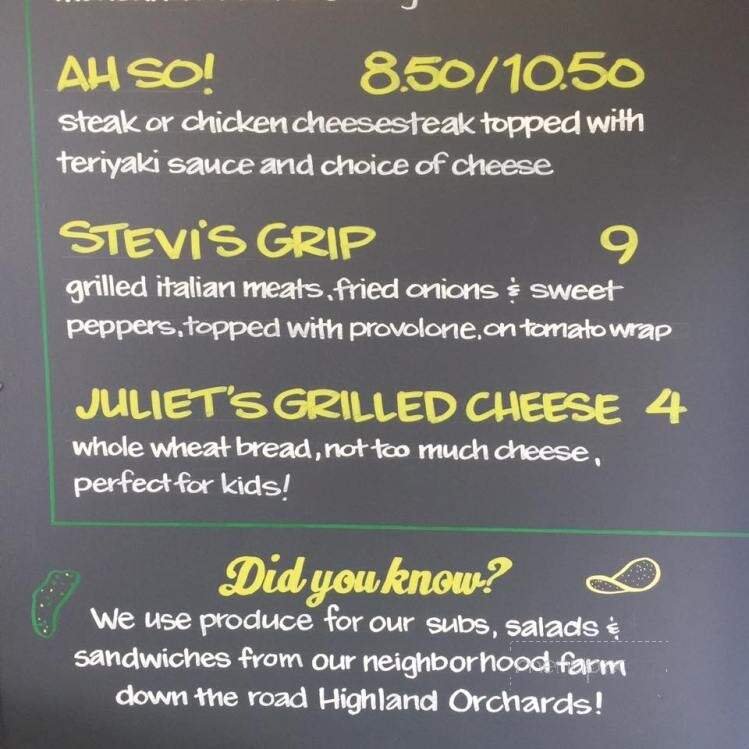 AH SO! 8.50/10.50
steak or chicken cheesesteak topped with
teriyaki sauce and choice of cheese
STEVI'S GRIP 9
grilled italian meats, fried onions & sweet
peppers, topped with provolone, on tomato wrap
JULIET'S GRILLED CHEESE 4
whole wheat bread, not too much cheese,
perfect for kids!
Did you know?
We use produce for our subs, salads &
sandwiches from our neighborhood farm
down the road Highland Orchards!